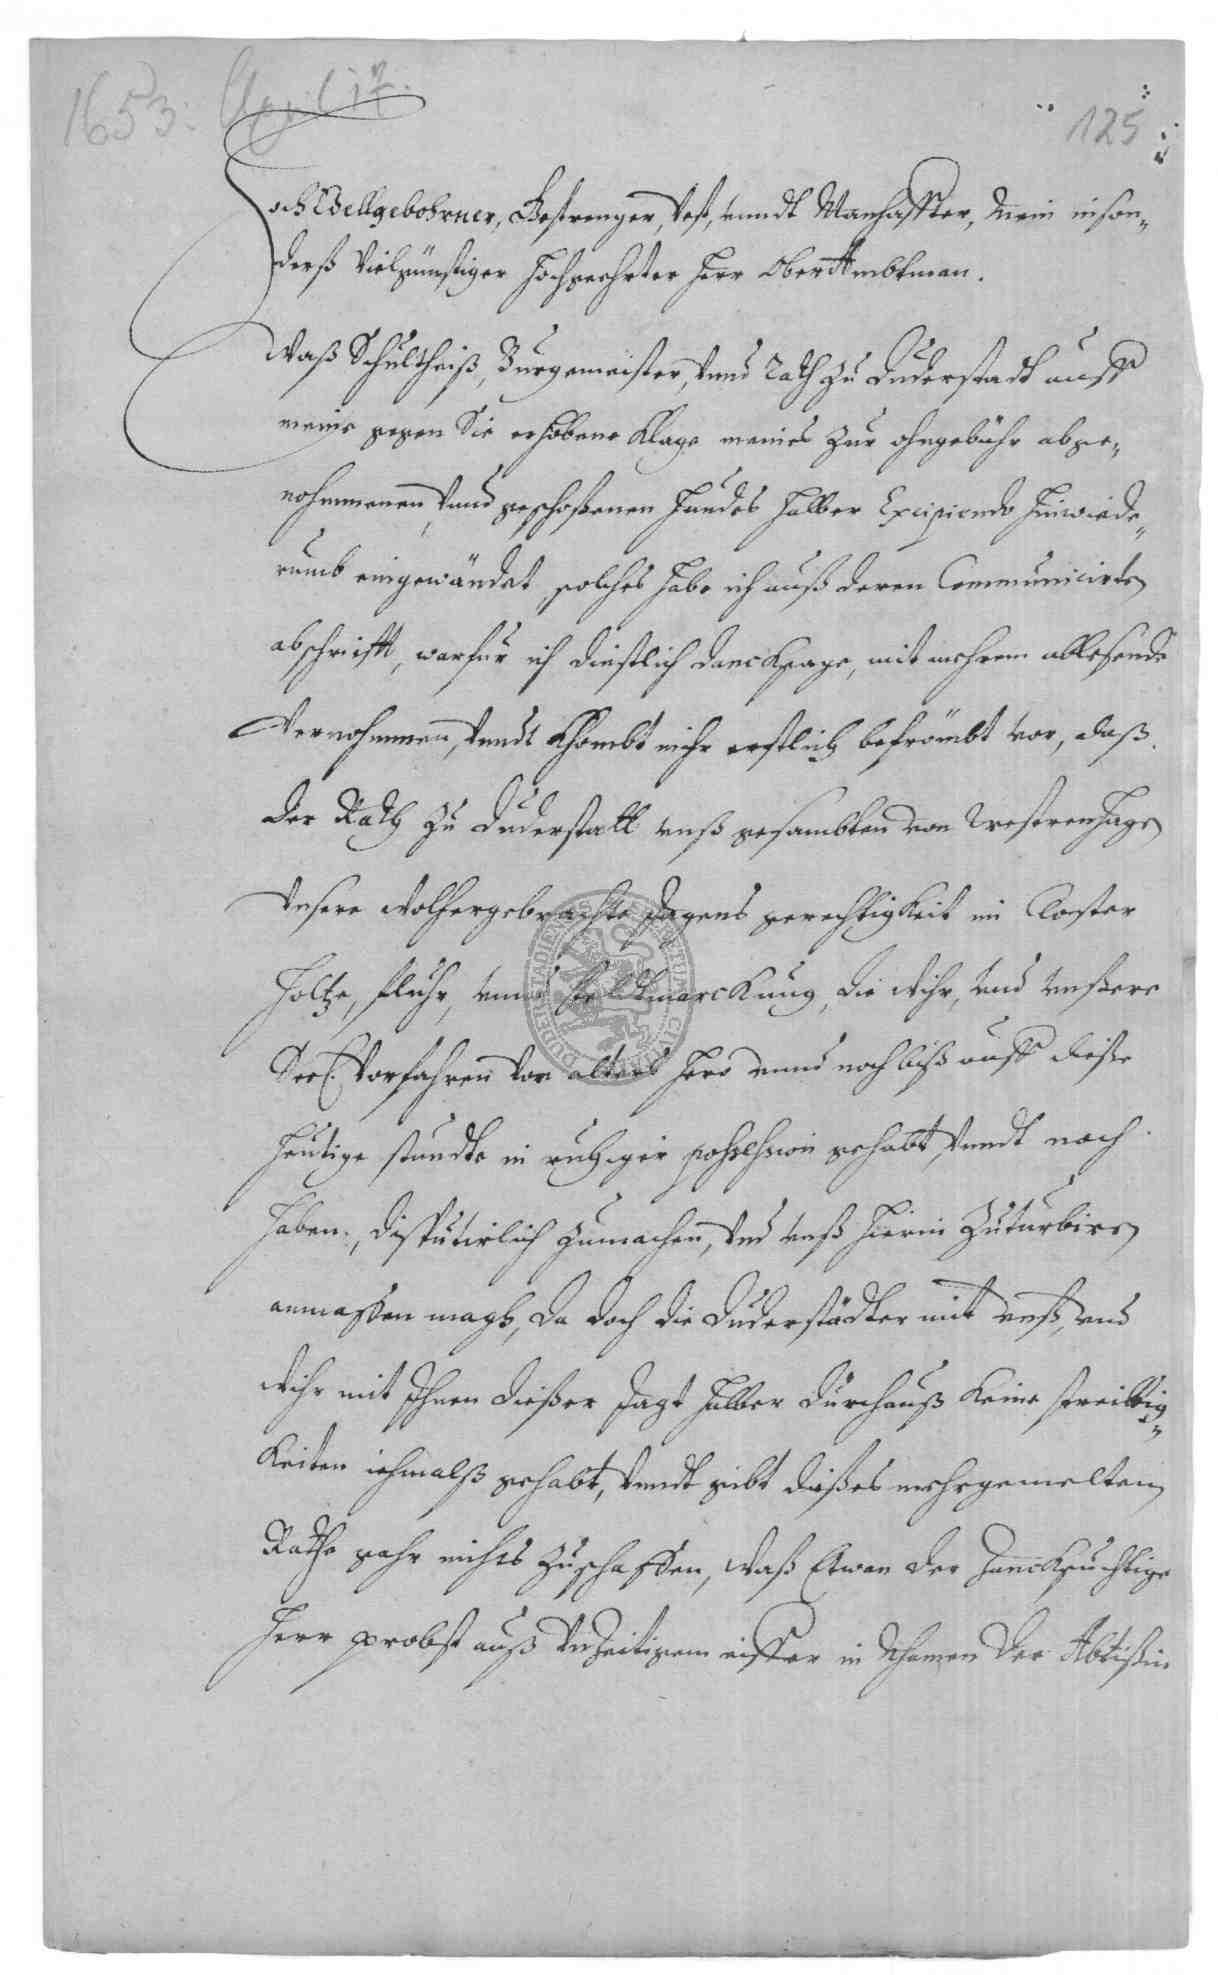 1653: April 17.
125
HochWollgebohrner, Gestrenger, Vest, unndt Manhaffter, Mein inson„
derß Vielgünstiger Hochgeehrter Herr OberAmbtman.
Waß Schultheiß, Burgemeister, unnd Rath zu Duderstadt auff
meine gegen Sie erhobene Klage meines zur ohngebühr abge„
nohmmenen, unnd geschoßenen Hundes halber Excipiendo hinwiede„
rumb eingewändet, solches habe ich auß deren Communicirten
abschrifft, warfür ich dinstlich danck sage, mit mehrem ablesende
Vernohmmen, unndt khombt mihr erstlich befrömbt vor, daß
der Rath zu Duderstatt unß gesambten von Westernhagen
Unsere Wolhergebrachte Jagens gerechtigkeit im Closter
Holtze, fluhr, unnd feldtmarckung, die Wihr, und unßere
Seel. Vorfahren von alters hero unnd noch biß auff dieße
heutige stundte in ruhiger possession gehabt, unndt noch
haben, disputirlich zumachen, und unß hierin Zuturbiren
anmaßen magh, da doch die Duderstädter mit unß, und
Wihr mit Ihnen dießer Jagt halber durchauß keine streittig„
keiten iehmalß gehabt, unndt gibt dießes mehrgemelten
Rathe gahr nichts zuschaffen, waß Etwan der Zancksüchtige
Herr probst auß Unzeitigem eiffer in Nhamen der Abtißin